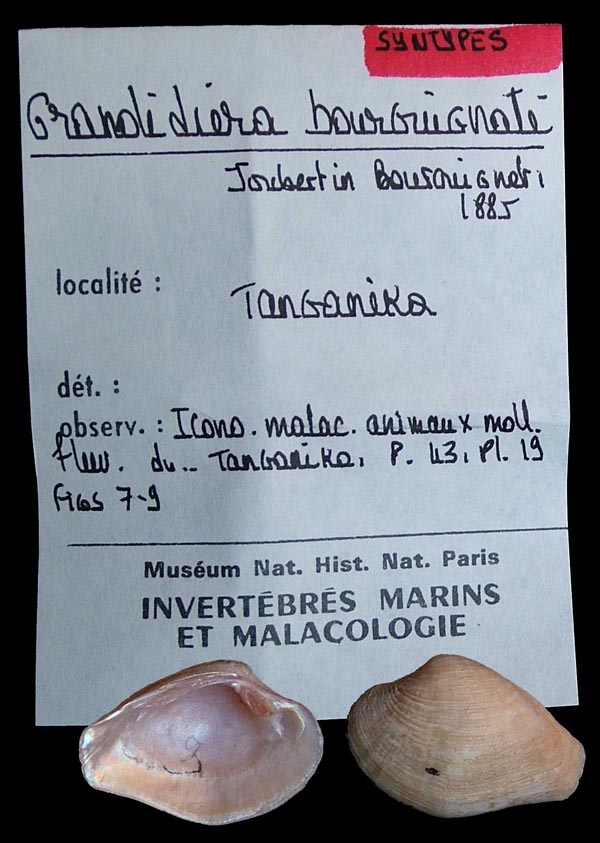 SYNTYPES
Grandidiera bourguignati
Joubertin Bourguignati
1885
localité : Tanganika
dét. :
observ. : Icono. malac. animaux moll.
fluv. du .. Tanganika, P. 43, Pl. 19
figs 7-9
Muséum Nat. Hist. Nat. Paris
INVERTÉBRÉS MARINS
ET MALACOLOGIE